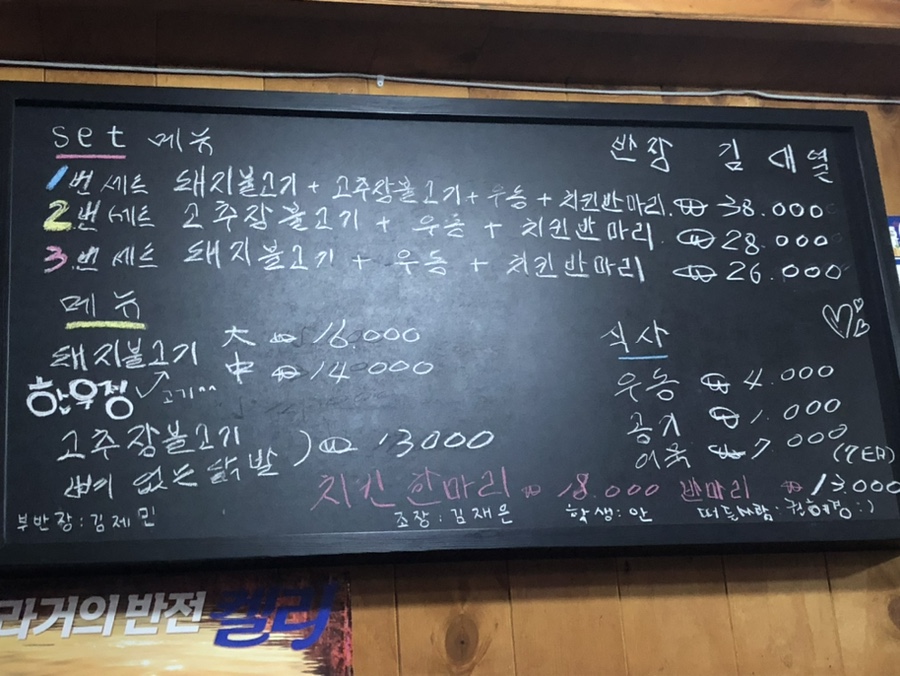 set 메뉴
반장 김대열
1번 세트 돼지불고기 + 고추장불고기 + 우동 + 치킨반마리. ₩ 38.000
2번 세트 고추장불고기 + 우동 + 치킨반마리 ₩ 28.000
3.번 세트 돼지불고기 + 우동 + 치킨반마리 ₩ 26.000
메뉴
돼지불고기 大 ₩ 16.000
中 ₩ 14.000
한우정 고기^^
고추장불고기
뼈 없는 닭발 ) ₩ 13000
식사
우동 ₩ 4.000
공기 ₩ 1.000
어묵 ₩ 7.000
치킨 한마리 ₩ 18.000 반마리 ₩ 13.000
부반장:김제민 조장:김재은 학생:안 떠든사람:권혜경:)
라거의 반전 켈리